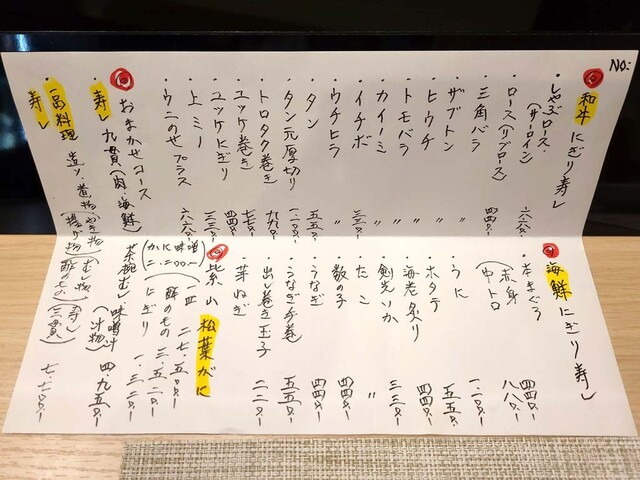 NO:
和牛にぎり寿し
・しゃぶロース・
(サーロイン)
・ロース(リブロース)
・三角バラ 四四〇ー
・ザブトン 〃
・ヒウチ 〃
・トモバラ 〃
・カイノミ 〃
・イチボ 〃
・ウチヒラ 三三〇ー
・タン 五五〇ー
・タン元厚切り 一、一〇〇ー
・トロタク巻き 九九〇ー
・ユッケ巻き 七七〇ー
・ユッケにぎり 四四〇ー
・上ミノ 三三〇ー
・ウニのせプラス
おまかせコース
・寿し九貫(肉・海鮮)
茶碗むし・味噌汁 四、九五〇ー
・一品料理
造り・煮物(やき物)(むし物)(汁物)
(揚げ物)(酢のもの)(寿し)(三貫)
寿し 七、七〇〇ー
海鮮にぎり寿し
・本まぐろ
赤身 四四〇ー
(中トロ 八八〇ー
・うに 一、一〇〇ー
・ホタテ 五五〇ー
・海老炙り 四四〇ー
・剣先いか 三三〇ー
・たこ 〃
・数の子 四四〇ー
・うなぎ 四四〇ー
・うなぎ手巻 五五〇ー
・出し巻き玉子 二二〇ー
・芽ねぎ
松葉がに
一皿 二七、五〇〇ー
(酢のもの 三、五二〇ー
にぎり 一、三二〇ー
(かに味噌
二、二〇〇ー)